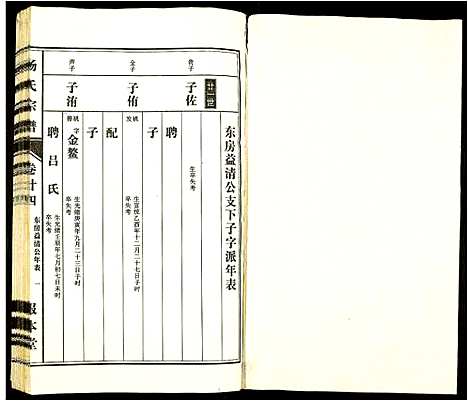 东房益清公支下子字派年表
廿世
子佐
生卒失考
聘
子
子侑
生宣统乙酉年十二月二十七日子时
卒失考
配
子
子洧
字金鳌
生光绪庚寅年九月二十三日子时
卒失考
聘吕氏
生光绪壬辰年七月初七日未时
卒失考
杨氏宗谱
卷廿四
东房益清公年表
一
报本堂